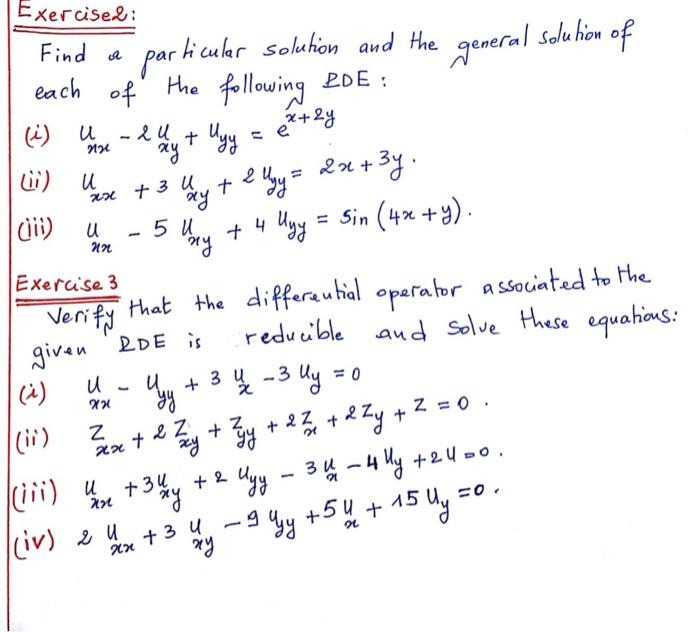 Exercise2:
Find a particular solution and the general solution of
each of the following PDE :
(i) u_xx - 2 u_xy + u_yy = e^{x+2y}
(ii) u_xx + 3 u_xy + 2 u_yy = 2x + 3y.
(iii) u_xx - 5 u_xy + 4 u_yy = sin (4x + y).
Exercise 3
Verify that the differential operator associated to the
given PDE is reducible and solve these equations:
(i) u_xx - u_yy + 3 u_x - 3 u_y = 0
(ii) z_xx + 2 z_xy + z_yy + 2 z_x + 2 z_y + z = 0.
(iii) u_xx + 3 u_xy + 2 u_yy - 3 u_x - 4 u_y + 2 u = 0.
(iv) 2 u_xx + 3 u_xy - 9 u_yy + 5 u_x + 15 u_y = 0.